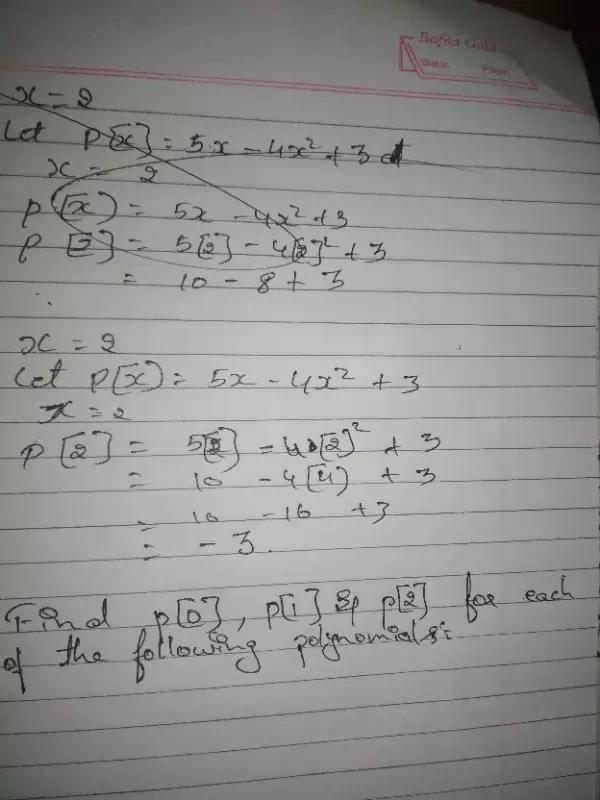 Bafna Gold
Date: Page:
x = 2
Let p[x] = 5x - 4x² + 3
x = 2
p(x) = 5x - 4x² + 3
p [2] = 5[2] - 4[2]² + 3
= 10 - 8 + 3
∴
x = 2
Let p[x] = 5x - 4x² + 3
x = 2
p [2] = 5[2] - 4[2]² + 3
= 10 - 4[4] + 3
= 10 - 16 + 3
= - 3.
Find p[0], p[1] & p[2] for each
of the following polynomials: